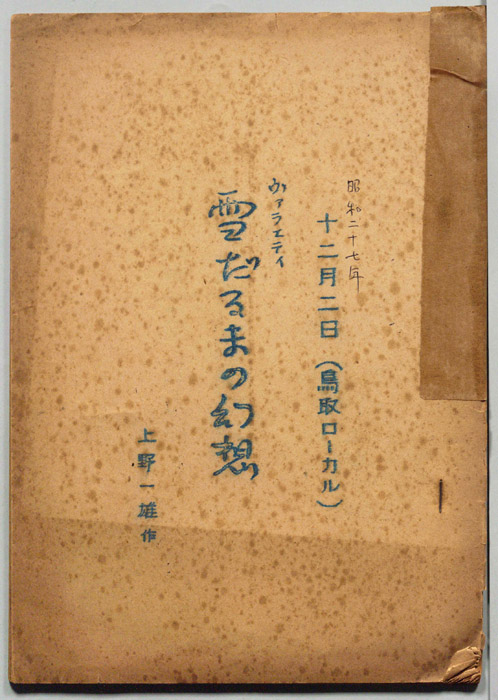 昭和二十七年
十二月二日（鳥取ローカル）
ヴァラエティ
雪だるまの幻想
上野一雄作